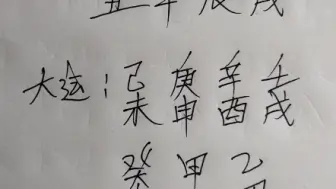 丑午辰戌
大运：己庚辛壬
未申酉戌
癸甲乙